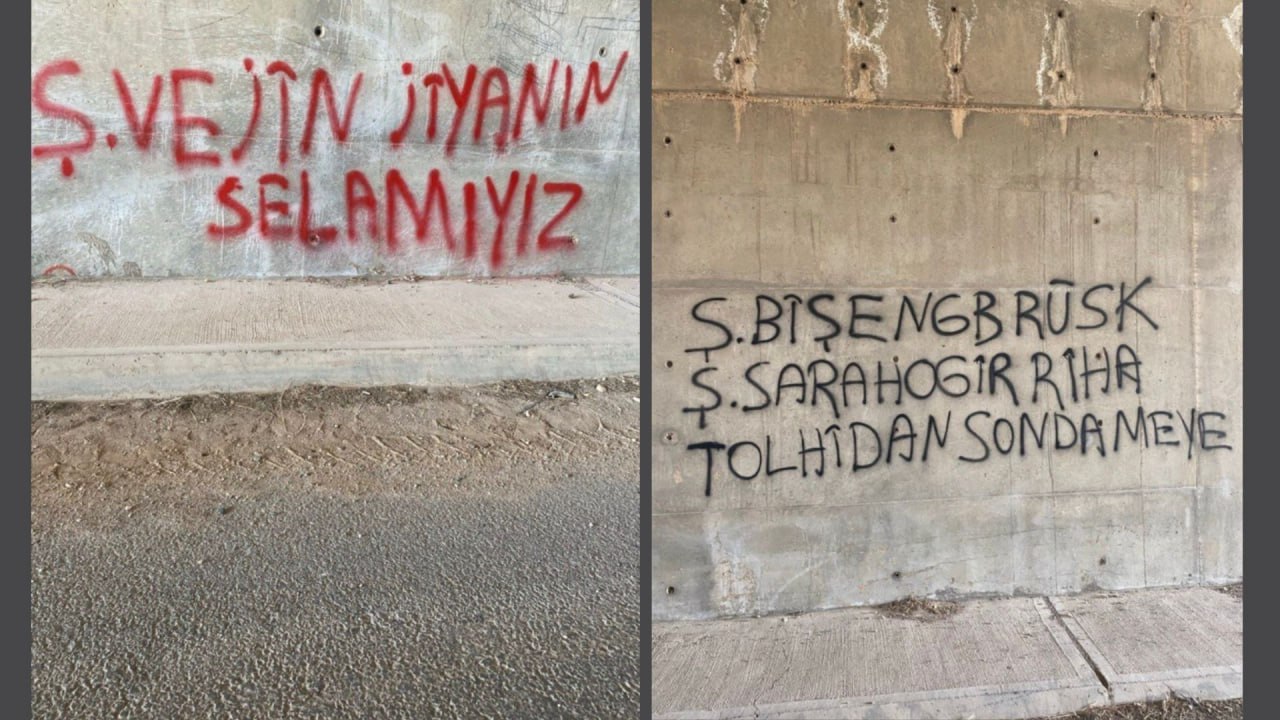 Ş.VEJÎN JÎYANIN
SELAMIYIZ
Ş.BÎŞENGBRÛSK
Ş.SARAHOGIR RIHA
TOLHÎDAN SONDA MEYE